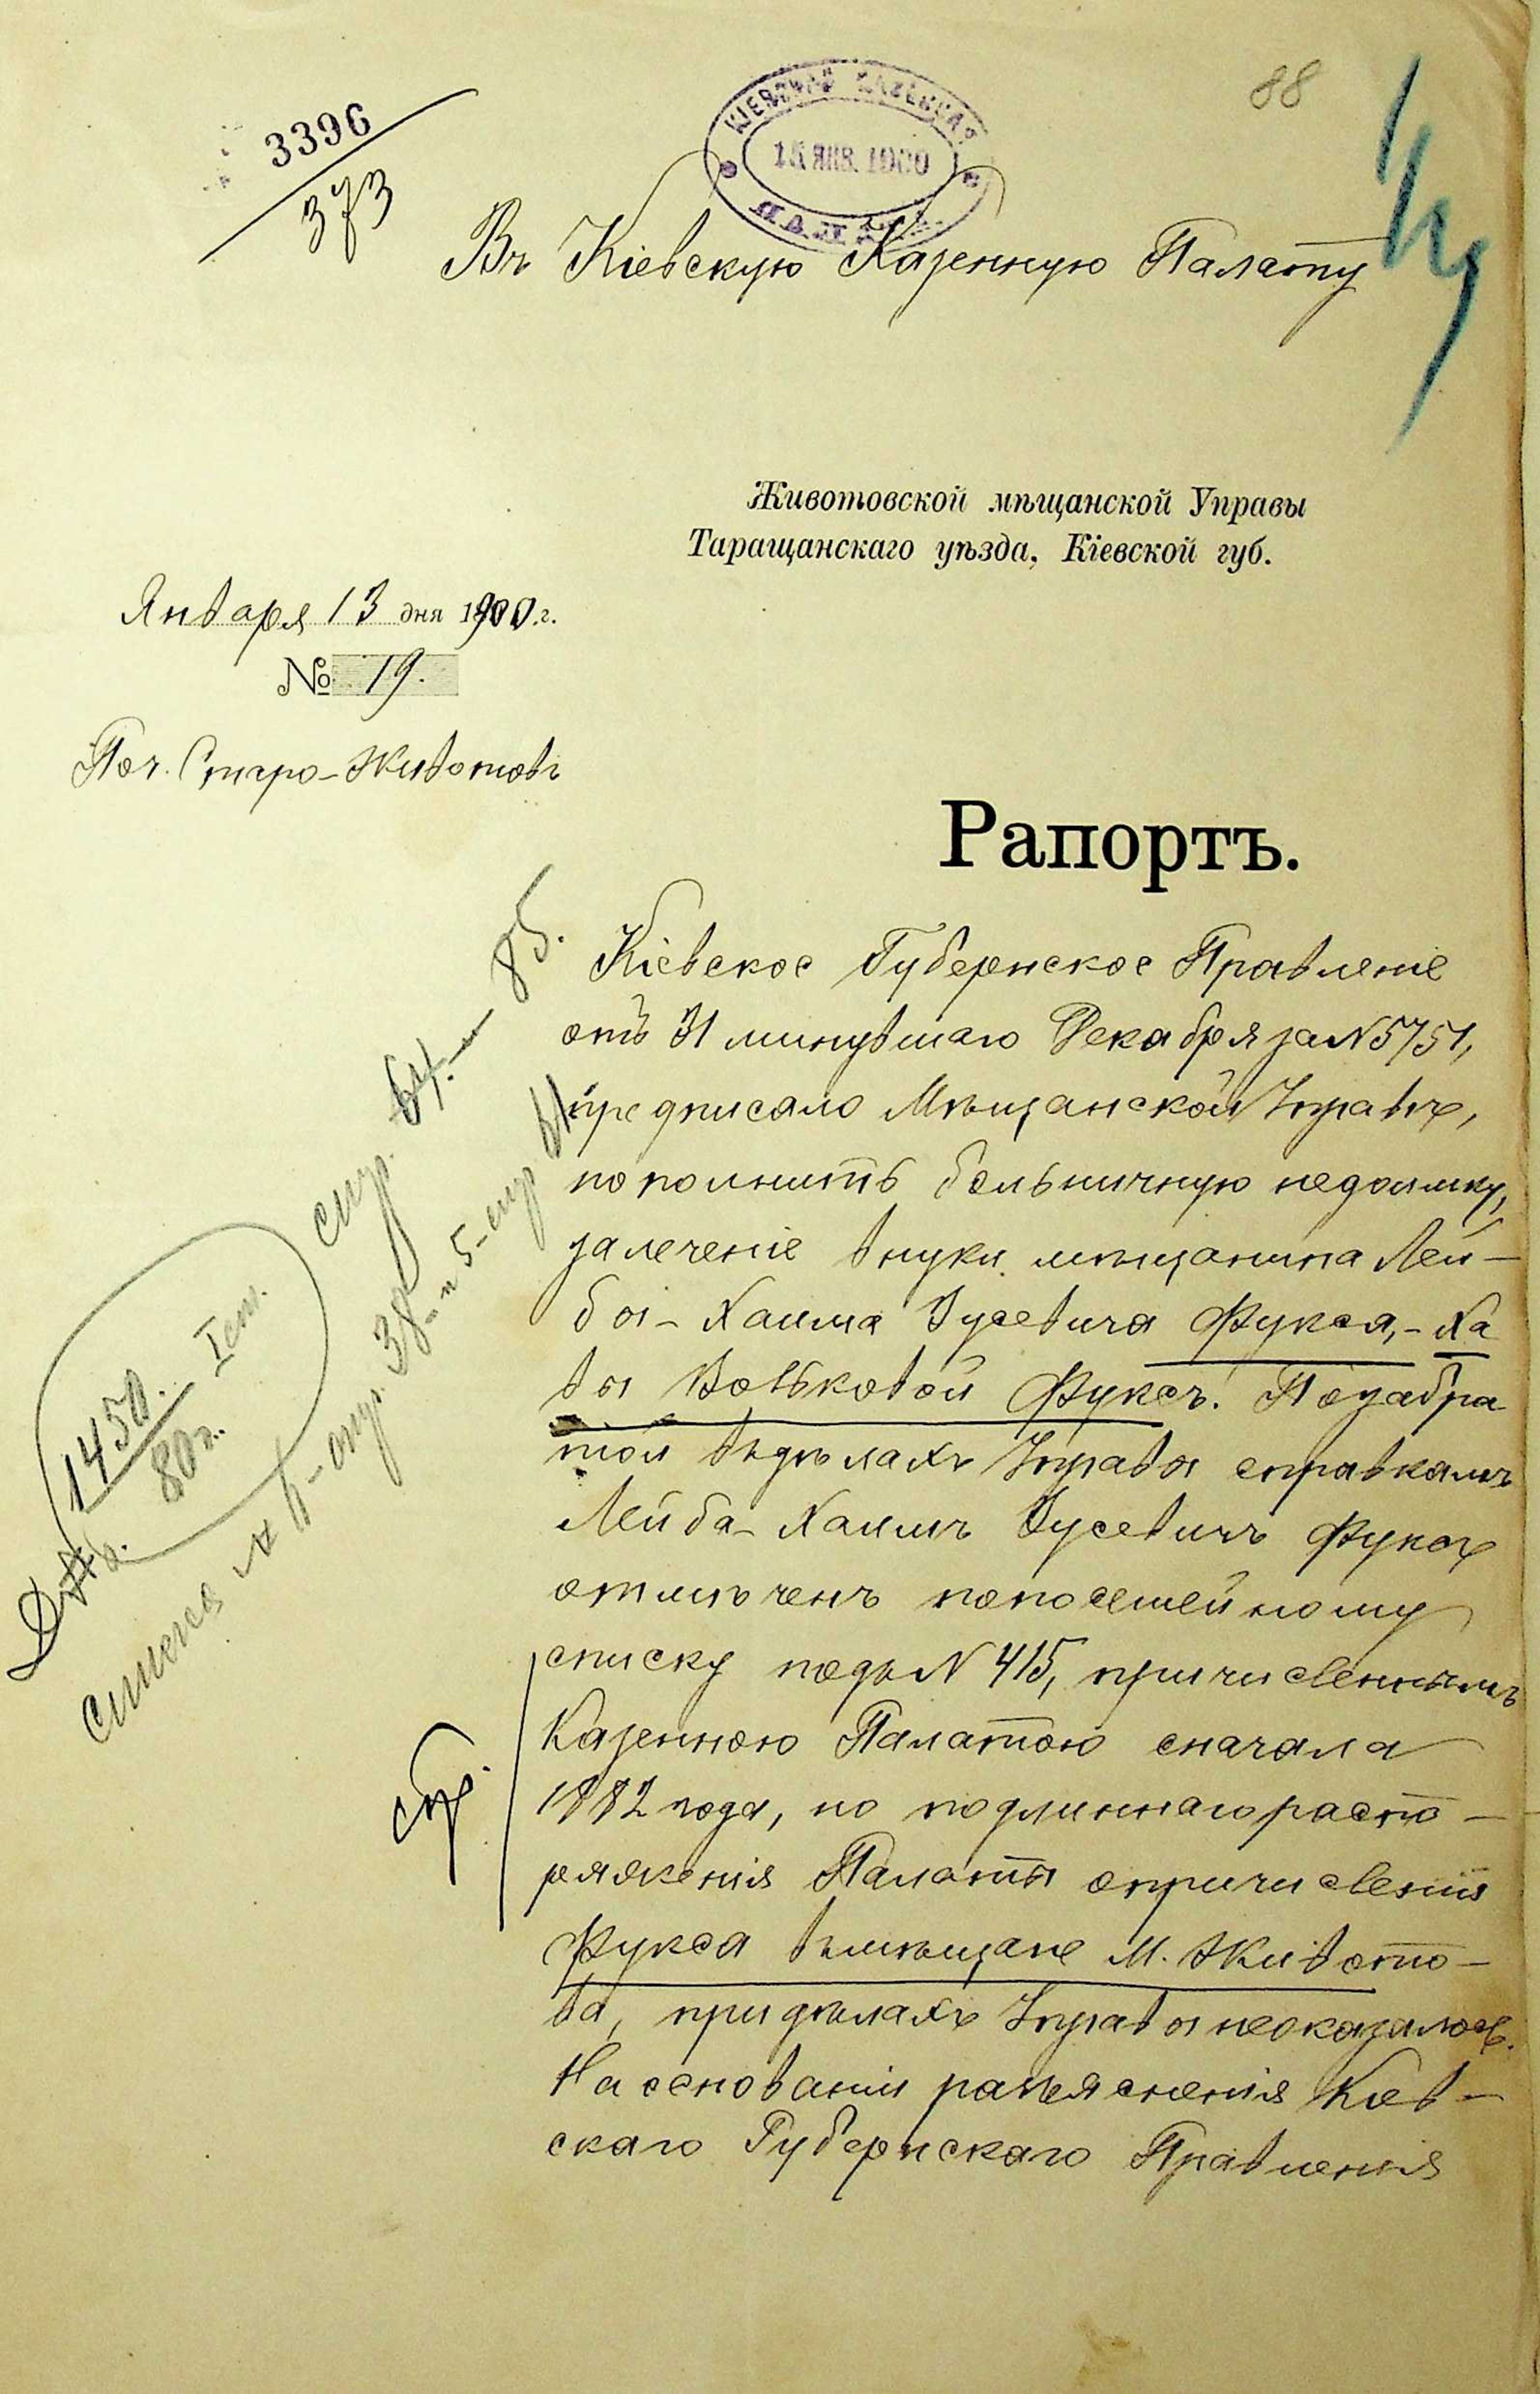 88
3396
373
КІЕВСКАЯ КАЗЕННАЯ
15 ЯНВ. 1900
ПАЛАТА
Въ Кіевскую Казенную Палату
Животовской мѣщанской Управы
Таращанскаго уѣзда, Кіевской губ.
Января 13 дня 1900 г.
№ 19.
Поч. Старо-Животовъ
Рапортъ.
Кіевское Губернское Правленіе
отъ 31 минувшаго Декабря за N 5751,
предписало Мѣщанской Управѣ,
пополнить больничную недоимку,
за леченіе внуки мѣщанина Лей-
бы-Хаима Зусевича Фукса,- Ха
вы Вольковой Фуксъ. По забра
той въ дѣлахъ Управы справкамъ
Лейба-Хаимъ Зусевичъ Фуксъ
отмѣченъ по посемейному
списку подъ N 415, причисленнымъ
Казенною Палатою сначала
1882 года, но подлиннаго распо-
ряженія Палаты о причисленіи
Фукса въ мѣщане м. Живото-
ва, при дѣлахъ Управы не оказалось.
На основаніи разъясненія Кіев-
скаго Губернскаго Правленія
1450.
80 г.
I ст.
стр.
85.